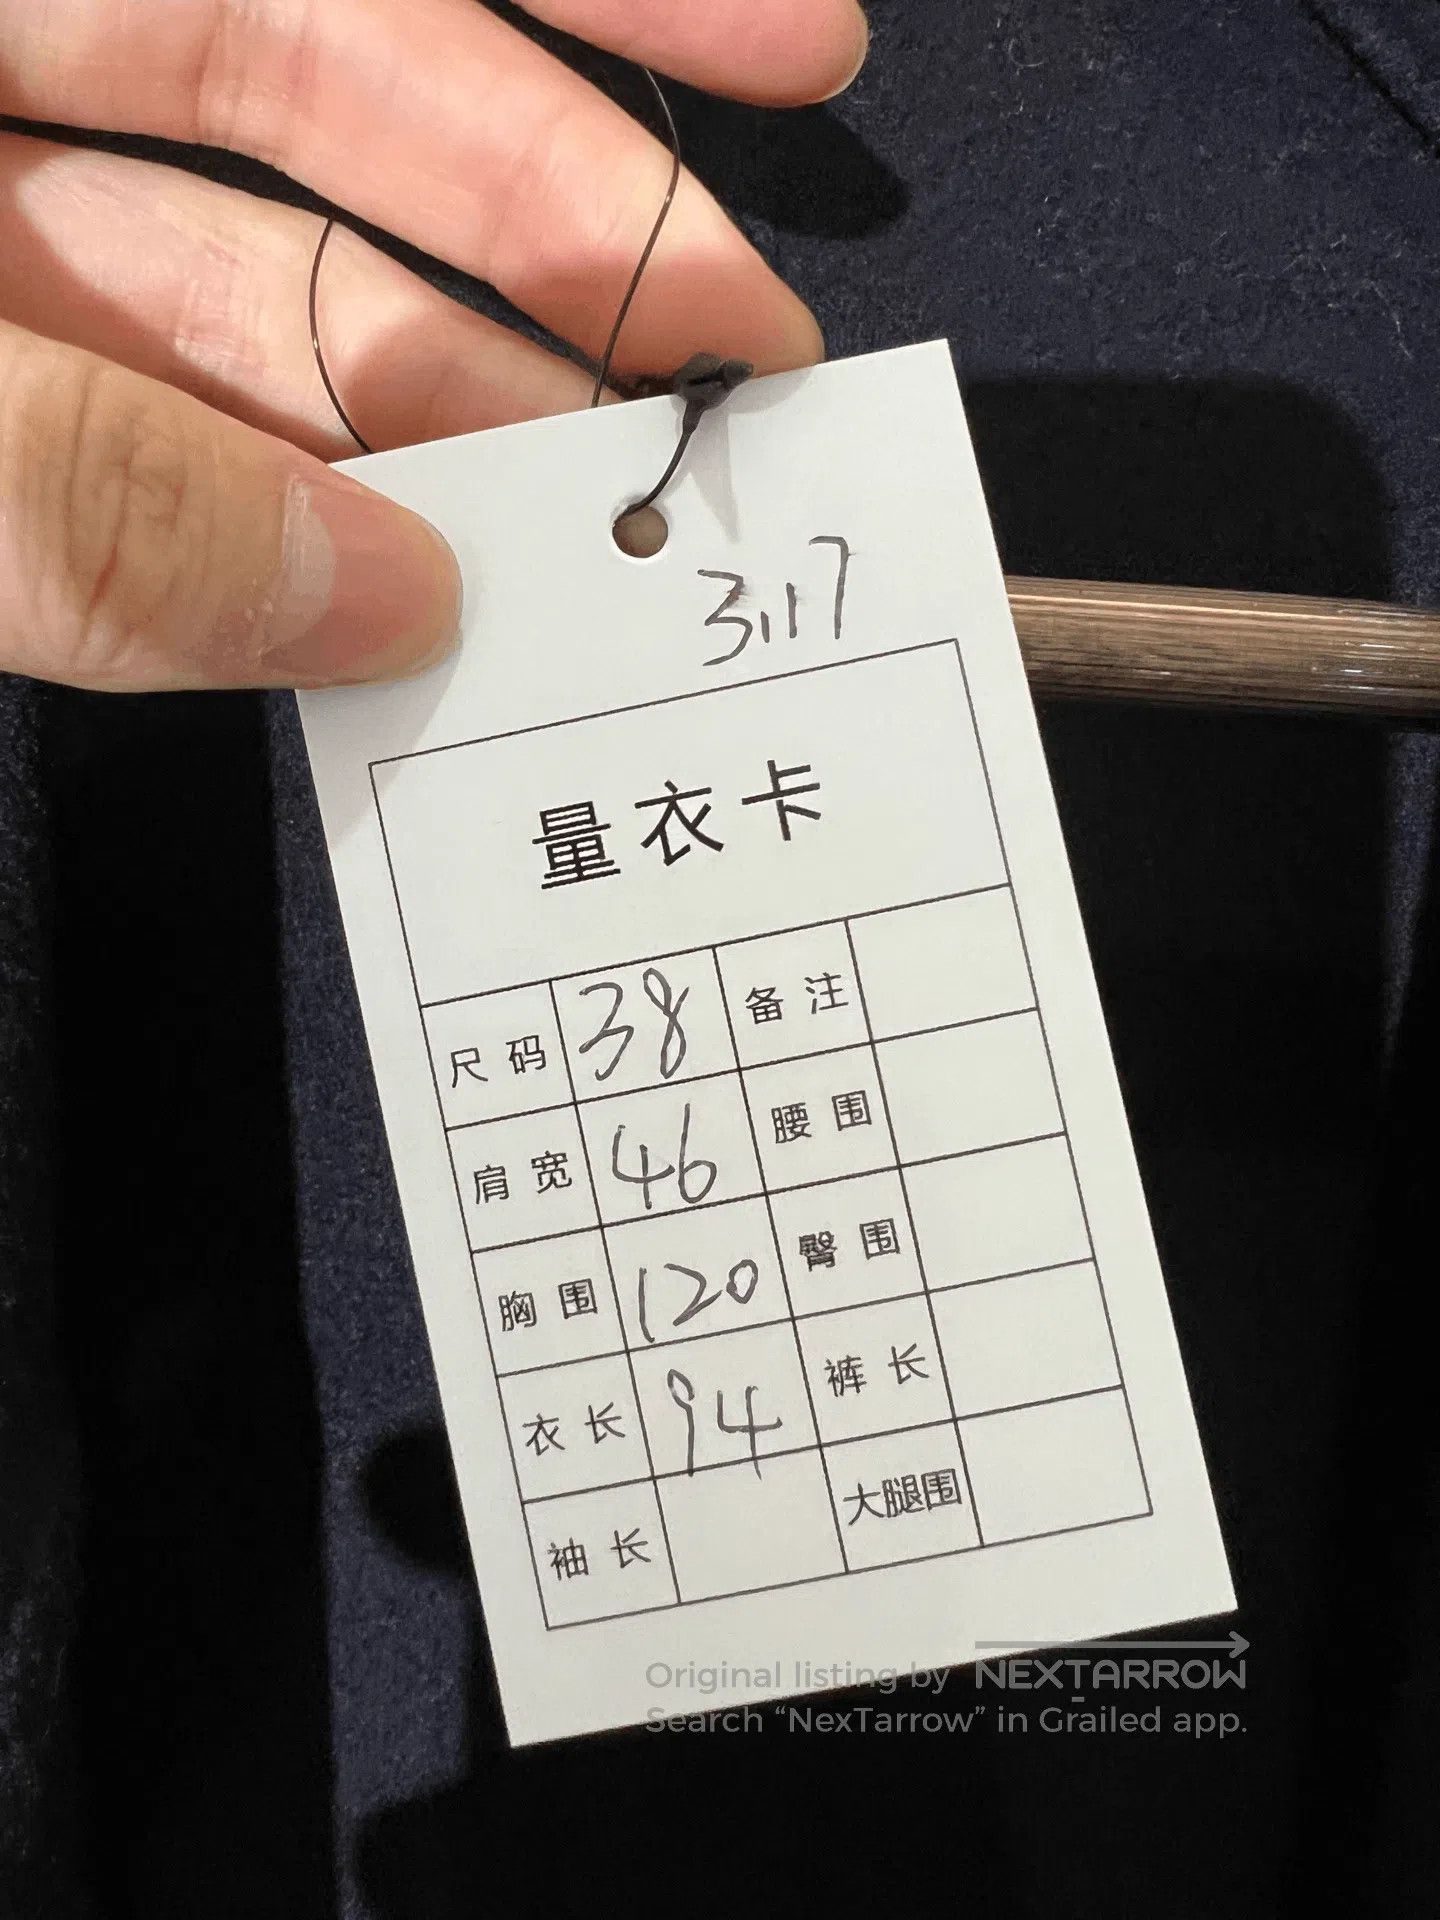 3.17
量衣卡
尺码 38 备注
肩宽 46 腰围
胸围 120 臀围
衣长 94 裤长
袖长 大腿围
Original listing by NEXTARROW
Search “NexTarrow” in Grailed app.